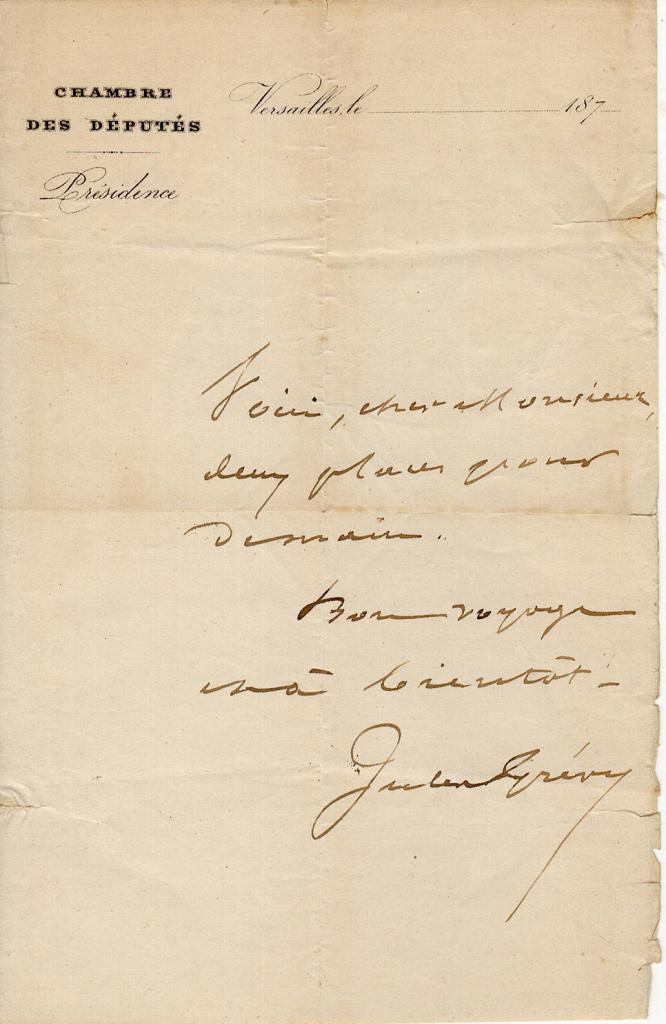 CHAMBRE
DES DÉPUTÉS
Présidence
Versailles, le 187
Voici, cher Monsieur,
deux places pour
demain.
Bon voyage
et à bientôt.
Jules Grévy